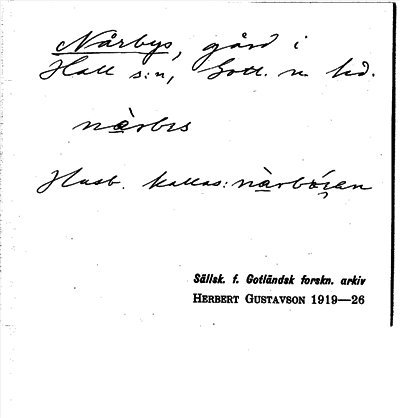 Nårbys, gård i
Hall s:n, Gotl. n. hd.
nàrbis
Husb. kallas: nàrbósen
Sällsk. f. Gotländsk forskn. arkiv
HERBERT GUSTAVSON 1919—26